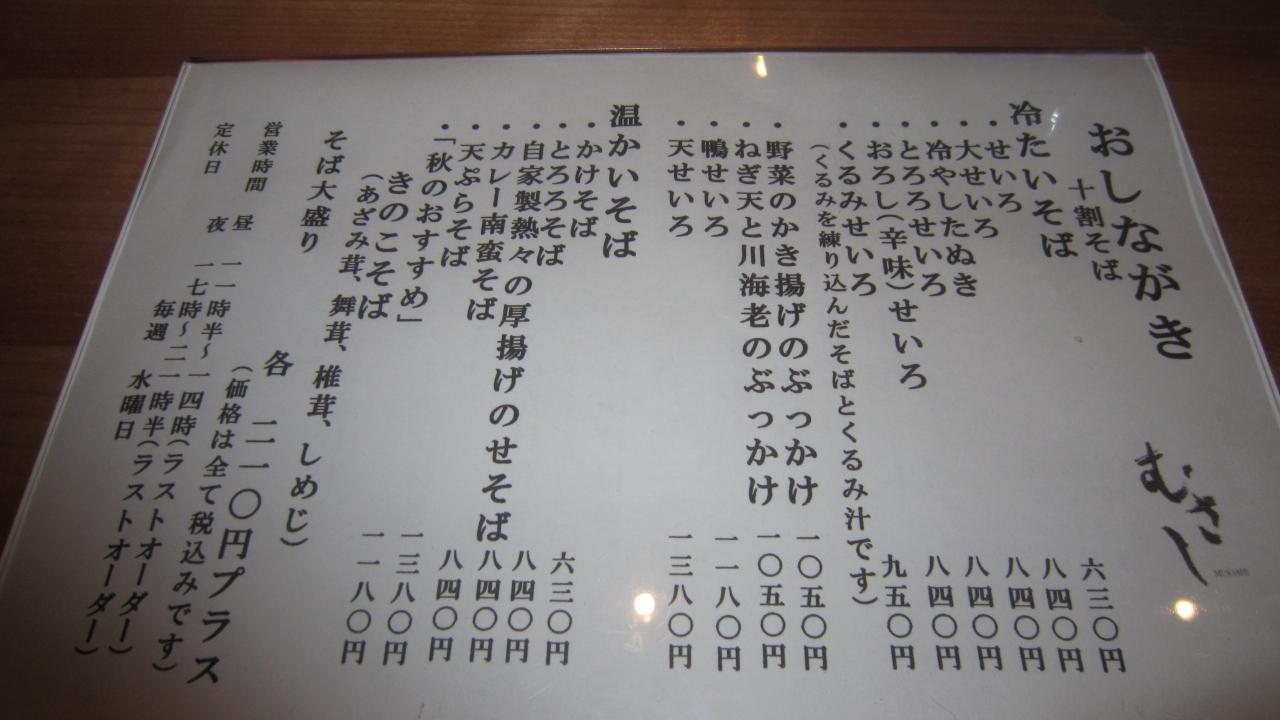 おしながき
むさし
MUSASHI
十割そば
冷たいそば
・せいろ 六三〇円
・大せいろ 八四〇円
・冷やしたぬき 八四〇円
・とろろせいろ 八四〇円
・おろし(辛味)せいろ 八四〇円
・くるみせいろ 九五〇円
(くるみを練り込んだそばとくるみ汁です)
・野菜のかき揚げのぶっかけ 一〇五〇円
・ねぎ天と川海老のぶっかけ 一〇五〇円
・鴨せいろ 一一八〇円
・天せいろ 一三八〇円
温かいそば
・かけそば 六三〇円
・とろろそば 八四〇円
・自家製熱々の厚揚げのせそば 八四〇円
・カレー南蛮そば 八四〇円
・天ぷらそば 一三八〇円
・「秋のおすすめ」
きのこそば 一一八〇円
(あざみ茸、舞茸、椎茸、しめじ)
そば大盛り 各 二一〇円プラス
(価格は全て税込みです)
営業時間 昼 一一時半〜一四時(ラストオーダー)
夜 一七時〜二一時半(ラストオーダー)
定休日 毎週 水曜日